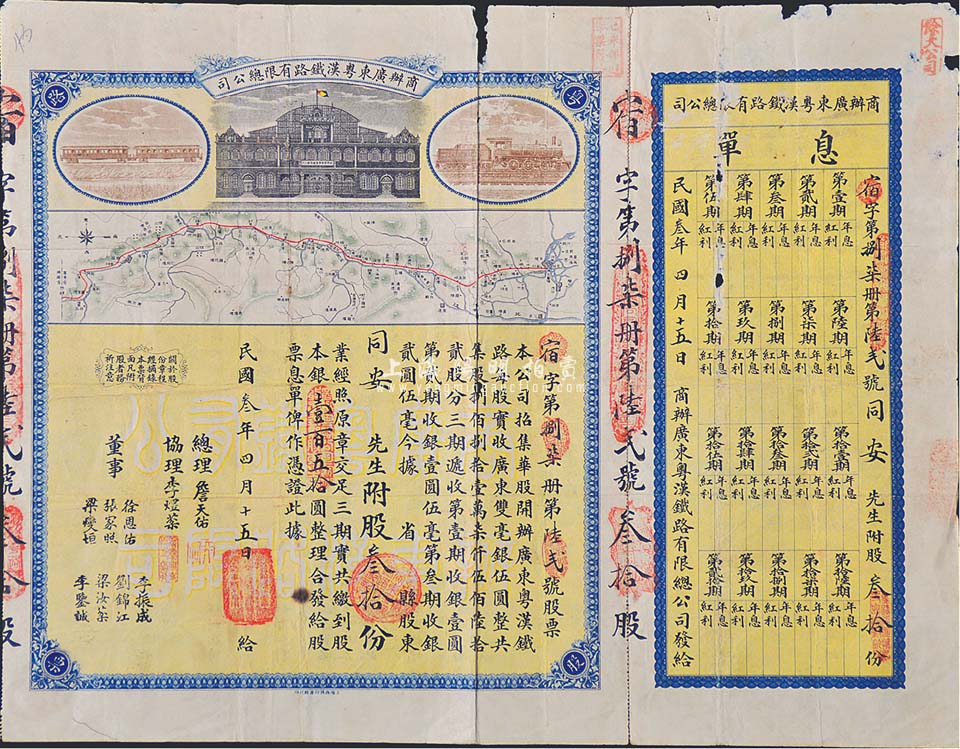 商辦廣東粵漢鐵路有限總公司
粵
路
股
宿字第捌柒册第陸弍號股票
本公司招集華股開辦廣東粵漢鐵
路每股實收廣東雙毫銀伍圓整共
集股捌佰捌拾壹萬柒仟伍佰陸拾
貳股分三期遞收第壹期收銀壹圓
第貳期收銀壹圓伍毫第叁期收銀
貳圓伍毫今據 省 縣股東
同安 先生附股叁拾份
業經照原章交足三期實共繳到股
本銀壹百五拾圓整理合發給股
票息單俾作憑證此據
民國叁年四月十五日給
總理詹天佑
協理李煜棻
董事
徐恩佑
張家照
梁燮垣
李振成
劉錦江
梁汝棻
李鑒誠
關於股
份章程
經摘錄
本票背
面凡附
股者務
祈注意
宿字第捌柒册第陸弍號叁拾股
商辦廣東粵漢鐵路有限總公司
息單
宿字第捌柒册第陸弍號同安先生附股叁拾份
第壹期 年息 紅利
第貳期 年息 紅利
第叁期 年息 紅利
第肆期 年息 紅利
第伍期 年息 紅利
第陸期 年息 紅利
第柒期 年息 紅利
第捌期 年息 紅利
第玖期 年息 紅利
第拾期 年息 紅利
第拾壹期 年息 紅利
第拾弍期 年息 紅利
第拾叁期 年息 紅利
第拾肆期 年息 紅利
第拾伍期 年息 紅利
第拾陸期 年息 紅利
第拾柒期 年息 紅利
第拾捌期 年息 紅利
第拾玖期 年息 紅利
第貳拾期 年息 紅利
民國叁年四月十五日商辦廣東粵漢鐵路有限總公司發給